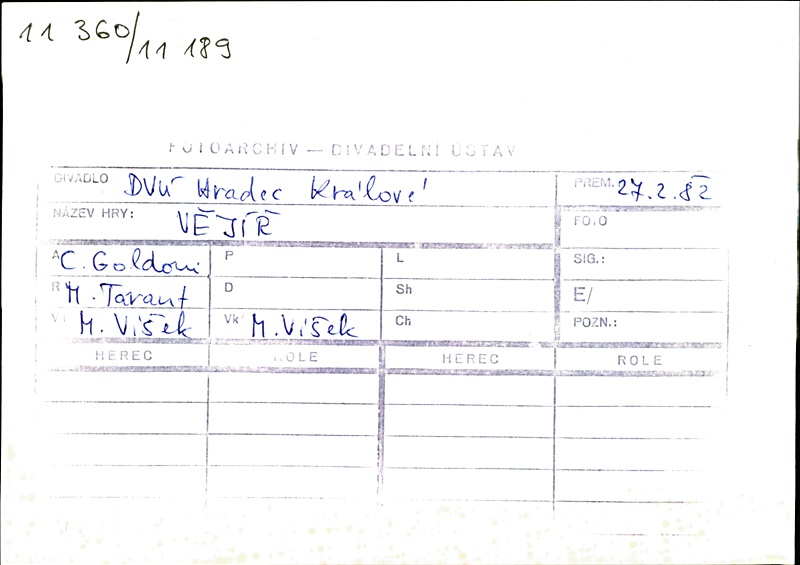 11 360/11 189
FOTOARCHIV — DIVADELNÍ ÚSTAV
DIVADLO DVÚ Hradec Králové PREM. 27.2.82
NÁZEV HRY: VĚJÍŘ FOTO
A C. Goldoni P L SIG.:
R M. Tarant D Sh E/
V M. Víšek Vk M. Víšek Ch POZN.:
HEREC ROLE HEREC ROLE